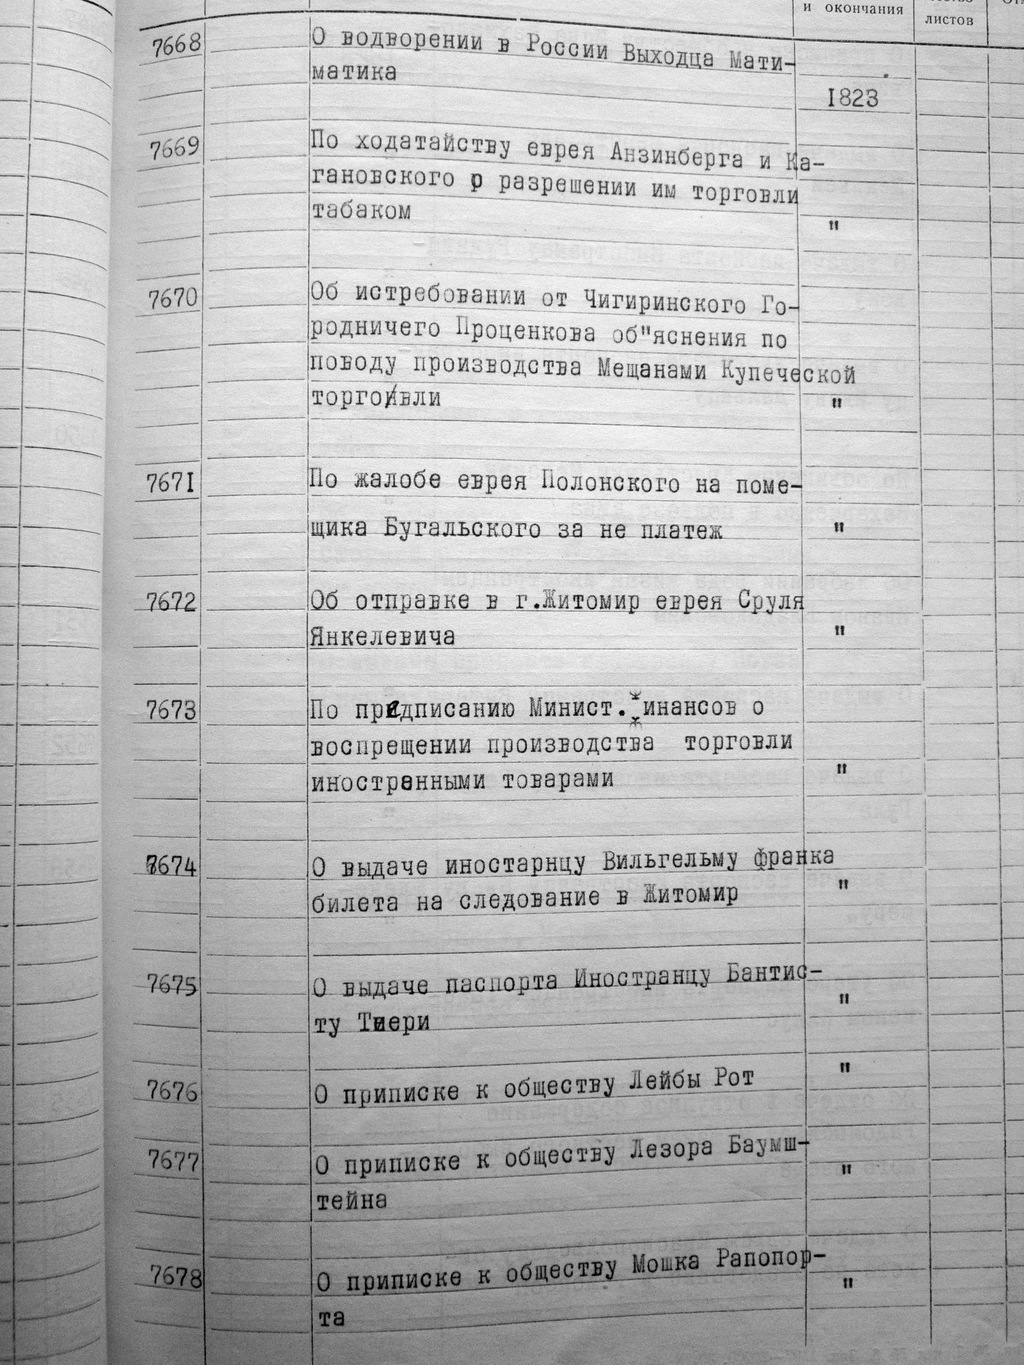 и окончания
листов
7668 О водворении в России Выходца Мати-
матика
1823
7669 По ходатайству еврея Анзинберга и Ка-
гановского р разрешении им торговли
табаком "
7670 Об истребовании от Чигиринского Го-
родничего Проценкова об"яснения по
поводу производства Мещанами Купеческой
торговли "
7671 По жалобе еврея Полонского на поме-
щика Бугальского за не платеж "
7672 Об отправке в г.Житомир еврея Сруля
Янкелевича "
7673 По предписанию Минист. инансов о
воспрещении производства торговли
иностранными товарами "
7674 О выдаче иностарнцу Вильгельму франка
билета на следование в Житомир "
7675 О выдаче паспорта Иностранцу Бантис-
ту Тиери "
7676 О приписке к обществу Лейбы Рот "
7677 О приписке к обществу Лезора Баумш-
тейна "
7678 О приписке к обществу Мошка Рапопор-
та "